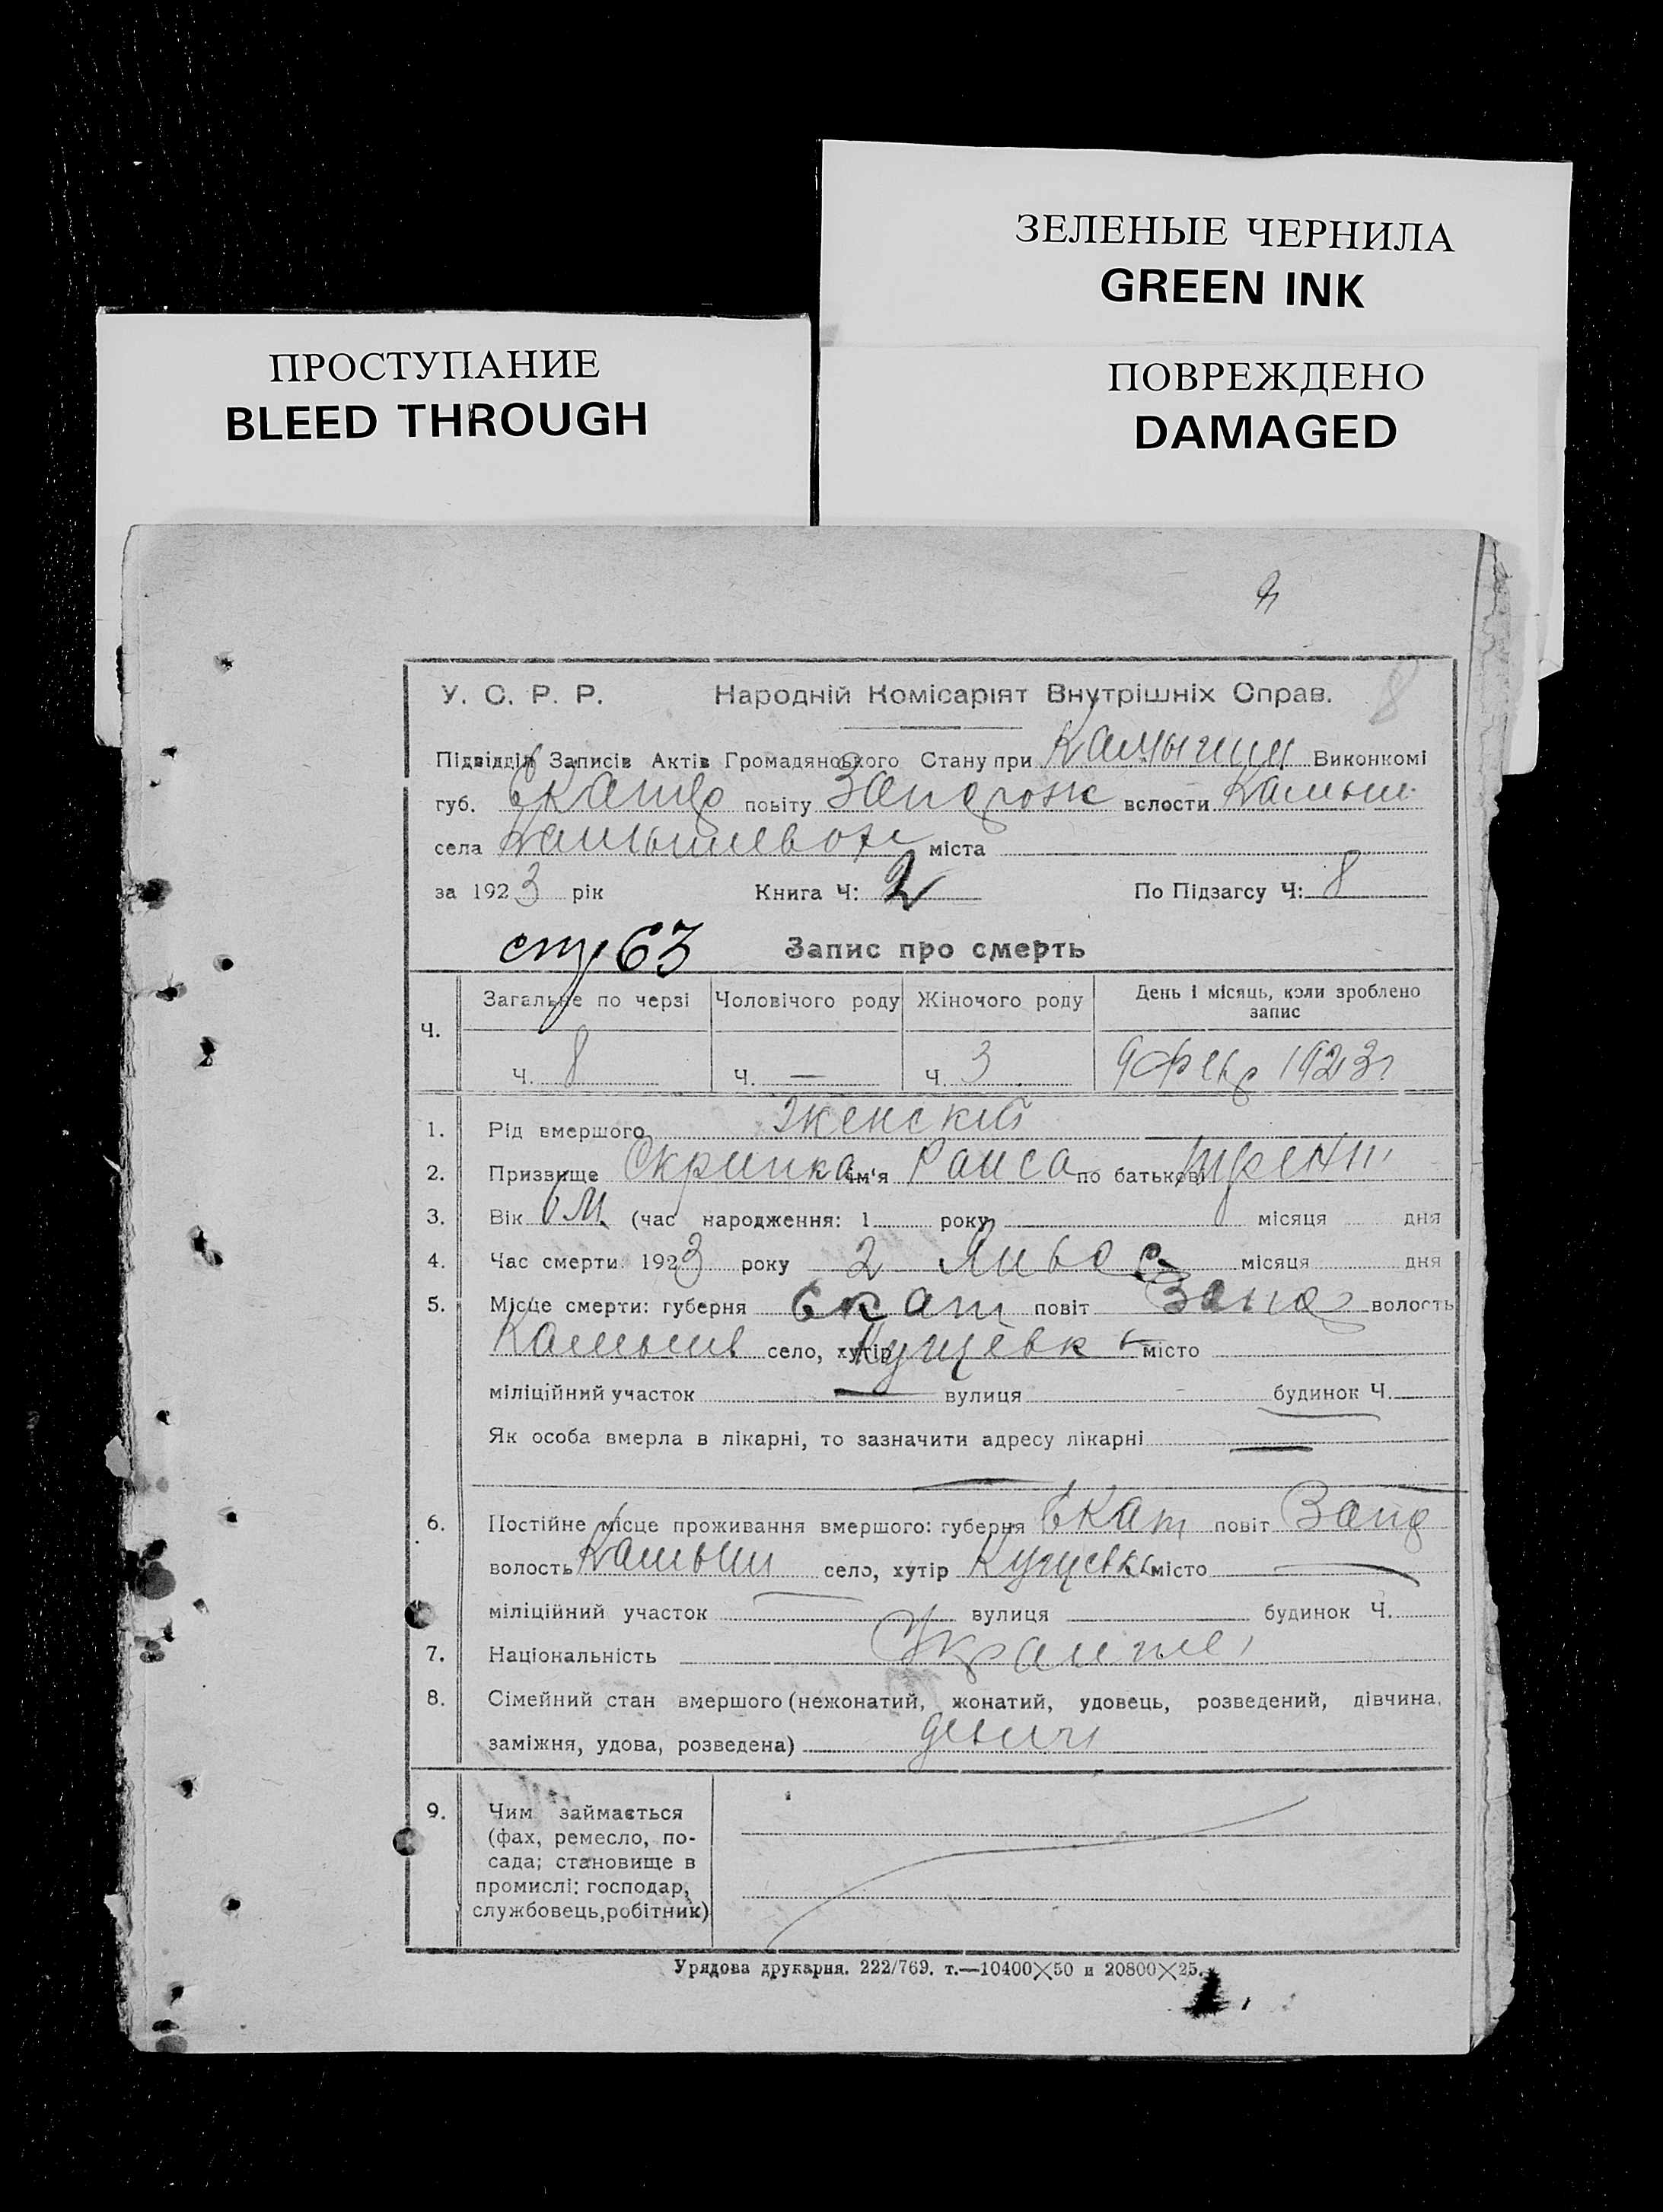 ЗЕЛЕНЫЕ ЧЕРНИЛА
GREEN INK
ПРОСТУПАНИЕ
BLEED THROUGH
ПОВРЕЖДЕНО
DAMAGED
8
У. С. Р. Р. Народній Комісаріят Внутрішніх Справ.
Підвідділ Записів Актів Громадянського Стану при Камышин Виконкомі
губ. Екатер повіту Запорож волости Камыш
села Камышевах міста
за 1923 рік Книга Ч: 2 По Підзагсу Ч: 8
стр 63 Запис про смерть
Ч. Загальне по черзі Чоловічого роду Жіночого роду День і місяць, коли зроблено запис
Ч. 8 Ч. — Ч. 3 9 Февр 1923 г
1. Рід вмершого Женский
2. Призвище Скрипка ім'я Раиса по батькові
3. Вік М. (час народження: 1 року місяця дня
4. Час смерти 1923 року 2 місяця дня
5. Місце смерти: губерня Екат повіт Запо волость
Камышев село, хутір Кущевк місто
міліційний участок — вулиця будинок Ч.
Як особа вмерла в лікарні, то зазначити адресу лікарні —
6. Постійне місце проживання вмершого: губерня Екат повіт Запо
волость Камыш село, хутір Кущевка місто —
міліційний участок вулиця будинок Ч.
7. Національність
8. Сімейний стан вмершого (нежонатий, жонатий, удовець, розведений, дівчина,
заміжня, удова, розведена) девич
9. Чим займається
(фах, ремесло, по-
сада; становище в
промислі: господар,
службовець, робітник)
Урядова друкарня. 222/769. т.—10400×50 и 20800×25.